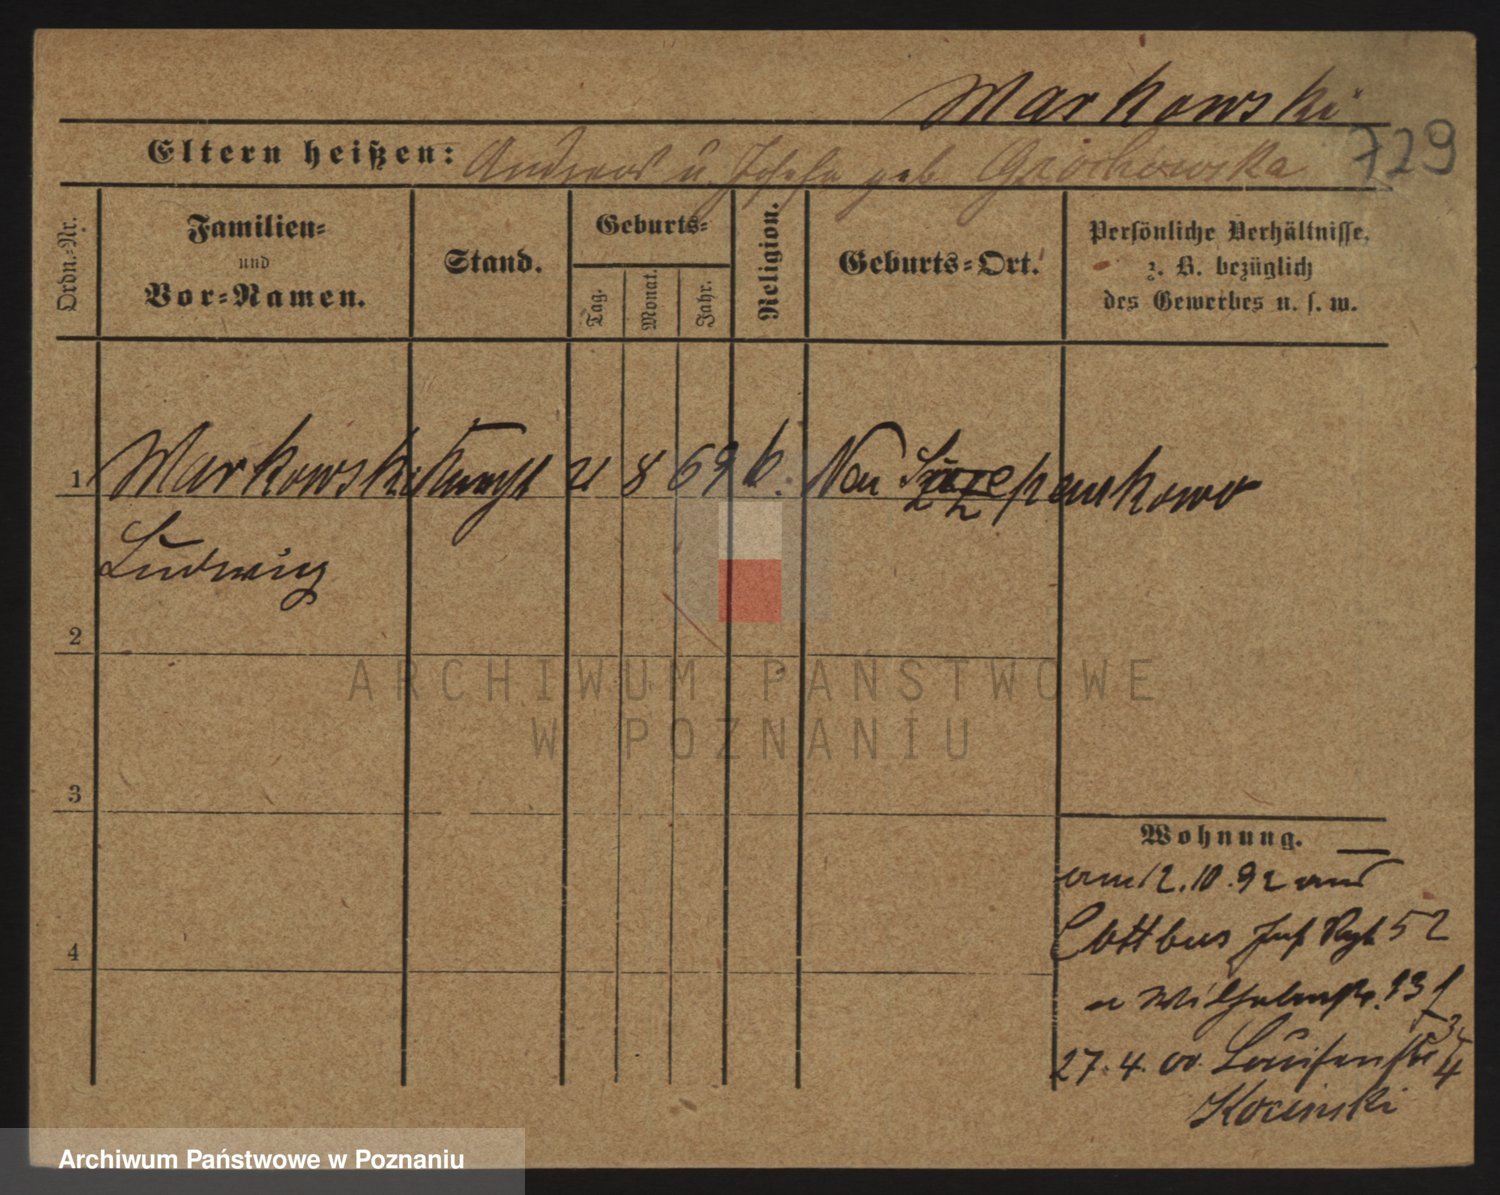 Markowski
729
Eltern heißen: Andreas u. Josefa geb. Grochowska
Ordn.-Nr.
Familien-
und
Vor-Namen.
Stand.
Geburts-
Tag.
Monat.
Jahr.
Religion.
Geburts-Ort.
Persönliche Verhältnisse,
z. B. bezüglich
des Gewerbes u. s. w.
1 Markowski 8 69 k. Neu
Ludwig
2
ARCHIWUM PAŃSTWOWE
W POZNANIU
3
4
Wohnung.
am 12.10.92 aus
Cottbus Inf Rgt 52
n Wilhelmstr. 23
27.4. Louisenstr 3/4
Kocinski
Archiwum Państwowe w Poznaniu